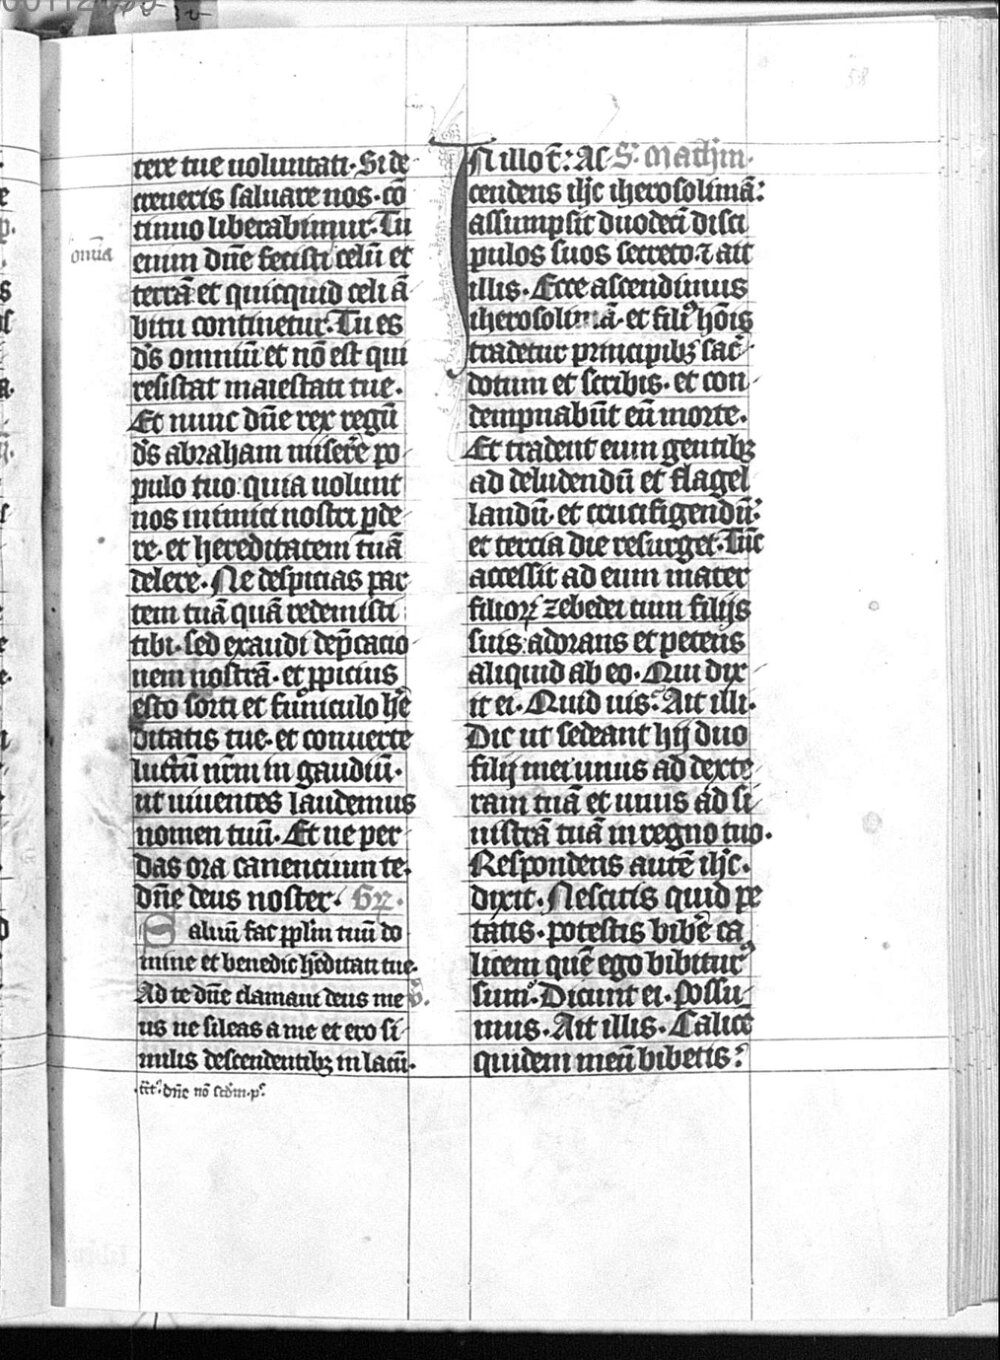 58
tere tue uoluntati. Si de
creueris saluare nos. cō
tinuo liberabimur. Tu
om̄ia
enim dn̄e fecisti celū et
terrā et quicquid celi ā
bitu continetur. Tu es
ds̄ omniū et nō est qui
resistat maiestati tue.
Et nunc dn̄e rex regū
ds̄ abraham miser̄e po
pulo tuo: quia uolunt
nos inimici nostri ꝑde
re. et hereditatem tuā
delere. Ne despicias par
tem tuā quā redemisti
tibi. sed exaudi dep̄catio
nem nostrā. et ꝓpicius
esto sorti et funiculo her̄e
ditatis tue. et conuerte
luctū nr̄m in gaudiū.
ut uiuentes laudemus
nomen tuū. Et ne per
das ora canencium te.
dn̄e deus noster. Gr̄.
Saluū fac ppl̄m tuū do
mine et benedic hēditati tue.
Ad te dn̄e clamaui deus me
us ne sileas a me et ero si
milis descendentibꝫ in lacū.
tr̄t. dn̄e nō scd̄m. p̄.
IN illo t̄: Ac S. math̄m.
cendens ih̄c iherosolimā:
assumpsit duodecī disci
pulos suos secreto. ⁊ ait
illis. Ecce ascendimus
iherosolimā. et filiꝰ hōis
tradetur principibꝫ sac̄
dotum et scribis. et con
dempnabūt eū morte.
Et tradent eum gentibꝫ
ad deludendū et flagel
landū. et crucifigendū:
et tercia die resurget. Tūc
accessit ad eum mater
filioꝝ zebedei cum filijs
suis: adorans et petens
aliquid ab eo. Qui dix
it ei. Quid uis? Ait illi.
Dic ut sedeant hij duo
filij mei. unus ad dexte
ram tuā et unus ad si
nistrā tuā in regno tuo.
Respondens autē ih̄c.
dixit. Nescitis quid pe
tatis. potestis bibe̅ ca
licem quē ego bibiturꝰ
sum? Dicunt ei. Possu
mus. Ait illis. Calicē
quidem meū bibetis: